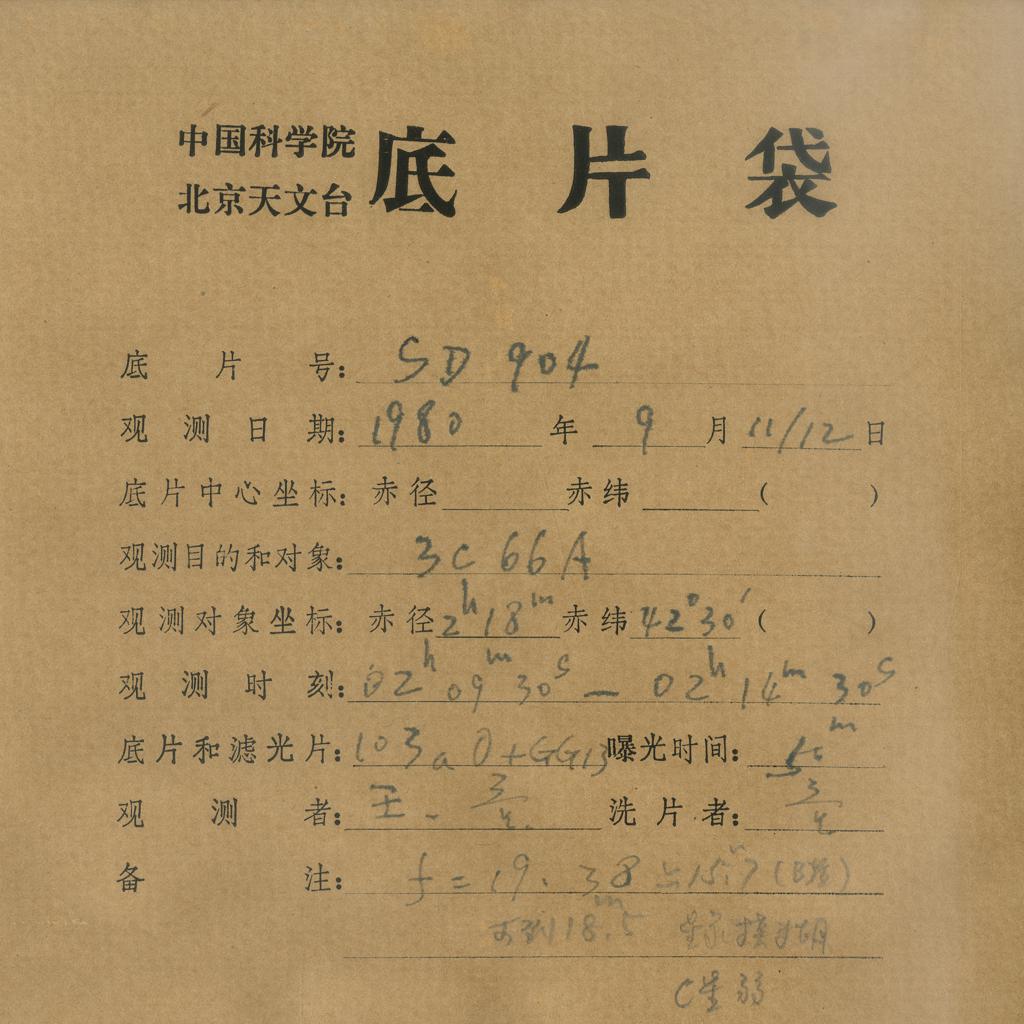 中国科学院
北京天文台 底片袋
底片号: SD 904
观测日期: 1980年 9月 11/12日
底片中心坐标: 赤径 赤纬 ( )
观测目的和对象: 3C 66A
观测对象坐标: 赤径 2h 18m 赤纬 42°30′ ( )
观测时刻: 02h 09m 30s — 02h 14m 30s
底片和滤光片: 103aO+GG13 曝光时间: 5m
观测者: 王. 洗片者:
备注: f=19.38 15.7
可到18.5m 模糊
C星弱